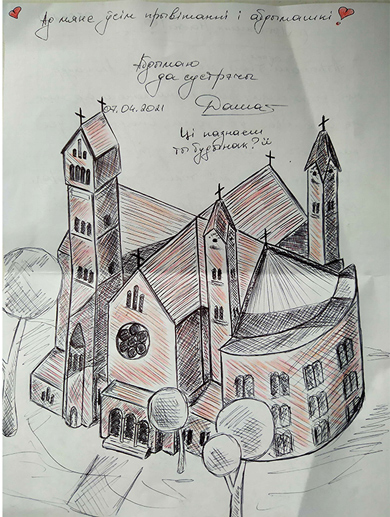 Ад мяне ўсім прывітанні і абдымашкі!
Абдымаю
да сустрэчы
07.04.2021 Даша
Ці пазнаеш
ты будынак?